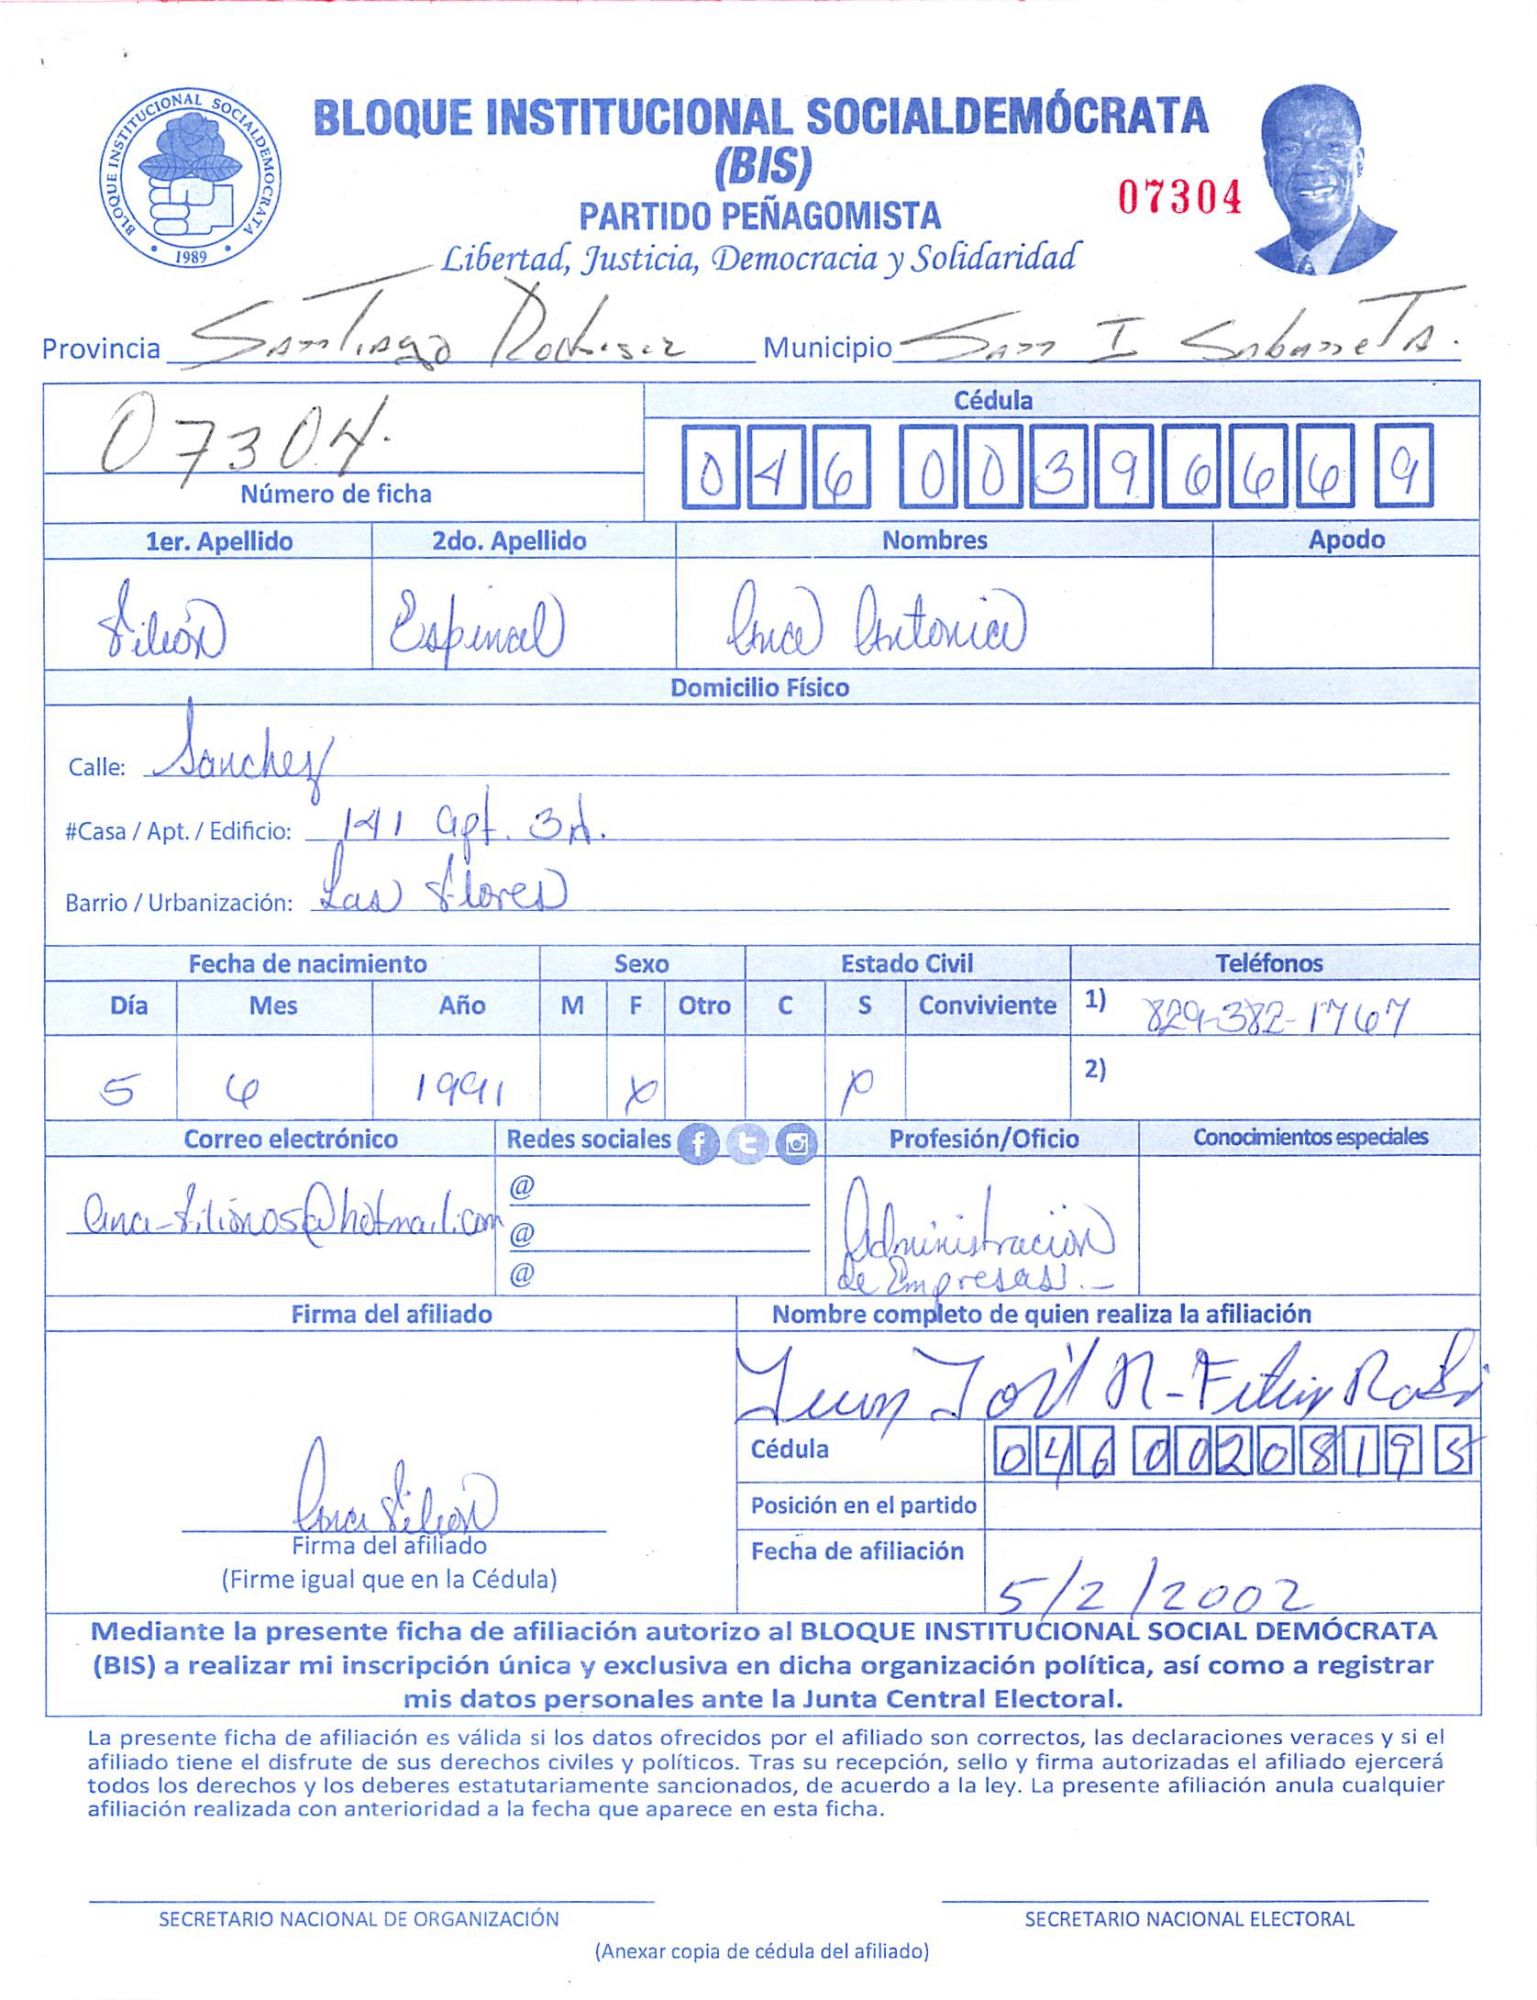 BLOQUE INSTITUCIONAL SOCIALDEMOCRATA
1989
BLOQUE INSTITUCIONAL SOCIALDEMÓCRATA
(BIS)
PARTIDO PEÑAGOMISTA
07304
Libertad, Justicia, Democracia y Solidaridad
Provincia Santiago Rodriguez Municipio San I Sabaneta.
07304.
Número de ficha
Cédula
046 0039666 9
1er. Apellido 2do. Apellido Nombres Apodo
Filión Espinal Ana Antonia
Domicilio Físico
Calle: Sanchez
#Casa / Apt. / Edificio: 141 apt. 3A.
Barrio / Urbanización: Las Flores
Fecha de nacimiento Sexo Estado Civil Teléfonos
Día Mes Año M F Otro C S Conviviente 1) 829-382-1767
5 6 1991 x x 2)
Correo electrónico Redes sociales Profesión/Oficio Conocimientos especiales
ana-filion05@hotmail.com
@
@
@
Administración
de Empresas.-
Firma del afiliado Nombre completo de quien realiza la afiliación
Cédula 046 0020819 5
Posición en el partido
Fecha de afiliación 5/2/2002
Ana Filión
Firma del afiliado
(Firme igual que en la Cédula)
Mediante la presente ficha de afiliación autorizo al BLOQUE INSTITUCIONAL SOCIAL DEMÓCRATA
(BIS) a realizar mi inscripción única y exclusiva en dicha organización política, así como a registrar
mis datos personales ante la Junta Central Electoral.
La presente ficha de afiliación es válida si los datos ofrecidos por el afiliado son correctos, las declaraciones veraces y si el
afiliado tiene el disfrute de sus derechos civiles y políticos. Tras su recepción, sello y firma autorizadas el afiliado ejercerá
todos los derechos y los deberes estatutariamente sancionados, de acuerdo a la ley. La presente afiliación anula cualquier
afiliación realizada con anterioridad a la fecha que aparece en esta ficha.
SECRETARIO NACIONAL DE ORGANIZACIÓN SECRETARIO NACIONAL ELECTORAL
(Anexar copia de cédula del afiliado)